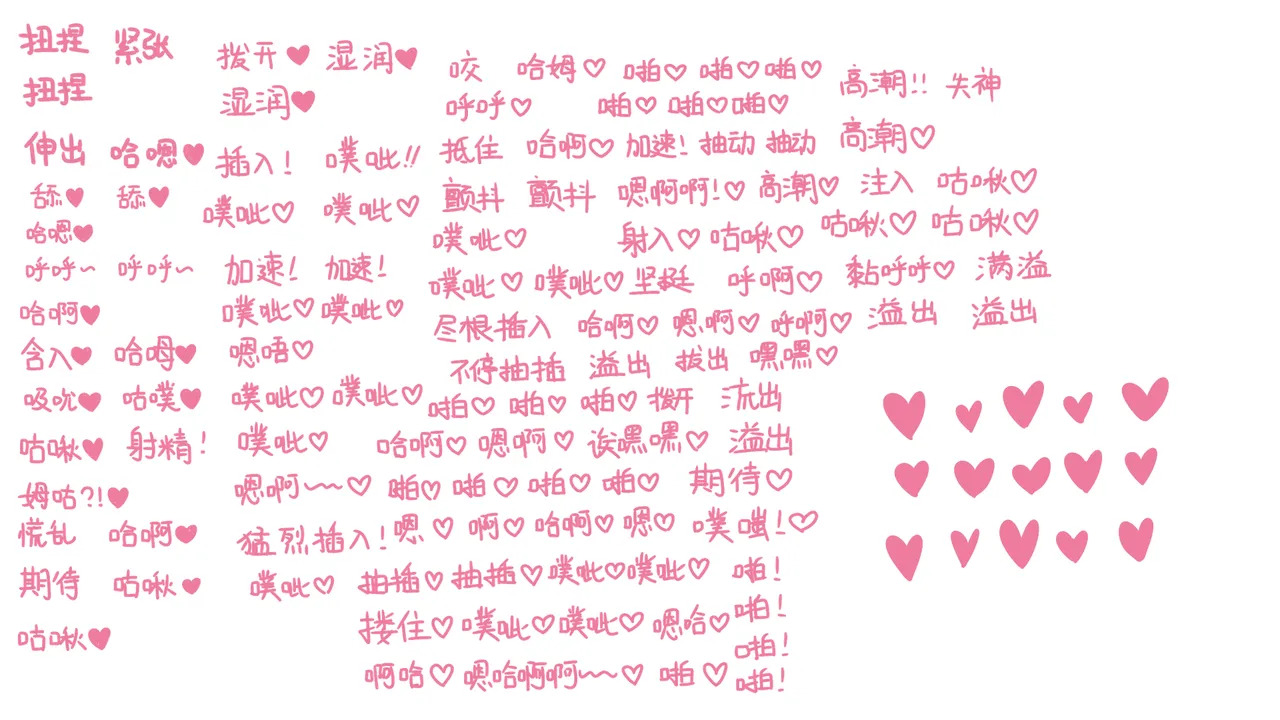 扭捏 紧张
扭捏
伸出 哈嗯♥
舔♥ 舔♥
哈嗯♥
呼呼~ 呼呼~
哈啊♥
含入♥ 哈姆♥
吸吮♥ 咕噗♥
咕啾♥ 射精!
姆咕?!♥
慌乱 哈啊♥
期待 咕啾♥
咕啾♥
拨开♥ 湿润♥
湿润♥
插入! 噗呲!!
噗呲♡ 噗呲♡
加速! 加速!
噗呲♡ 噗呲♡
嗯唔♡
噗呲♡ 噗呲♡
噗呲♡
嗯啊~~♡
猛烈插入!
噗呲♡
咬 哈姆♡ 啪♡ 啪♡ 啪♡
呼呼♡ 啪♡ 啪♡ 啪♡
抵住 哈啊♡ 加速! 抽动 抽动
颤抖 颤抖 嗯啊啊!♡ 高潮♡
噗呲♡ 射入♡ 咕啾♡
噗呲♡ 噗呲♡ 坚挺 呼啊♡
尽根插入 哈啊♡ 嗯啊♡ 呼啊♡
不停抽插 溢出 拔出 嘿嘿♡
啪♡ 啪♡ 啪♡ 拨开 流出
哈啊♡ 嗯啊♡ 诶嘿嘿♡ 溢出
啪♡ 啪♡ 啪♡ 啪♡ 期待♡
嗯♡ 啊♡ 哈啊♡ 嗯♡ 噗嗤!♡
抽插♡ 抽插♡ 噗呲♡ 噗呲♡ 啪!
搂住♡ 噗呲♡ 噗呲♡ 嗯哈♡ 啪!
啪!
啊哈♡ 嗯哈啊啊~~♡ 啪♡ 啪!
高潮!! 失神
高潮♡
注入 咕啾♡
咕啾♡ 咕啾♡
黏呼呼♡ 满溢
溢出 溢出